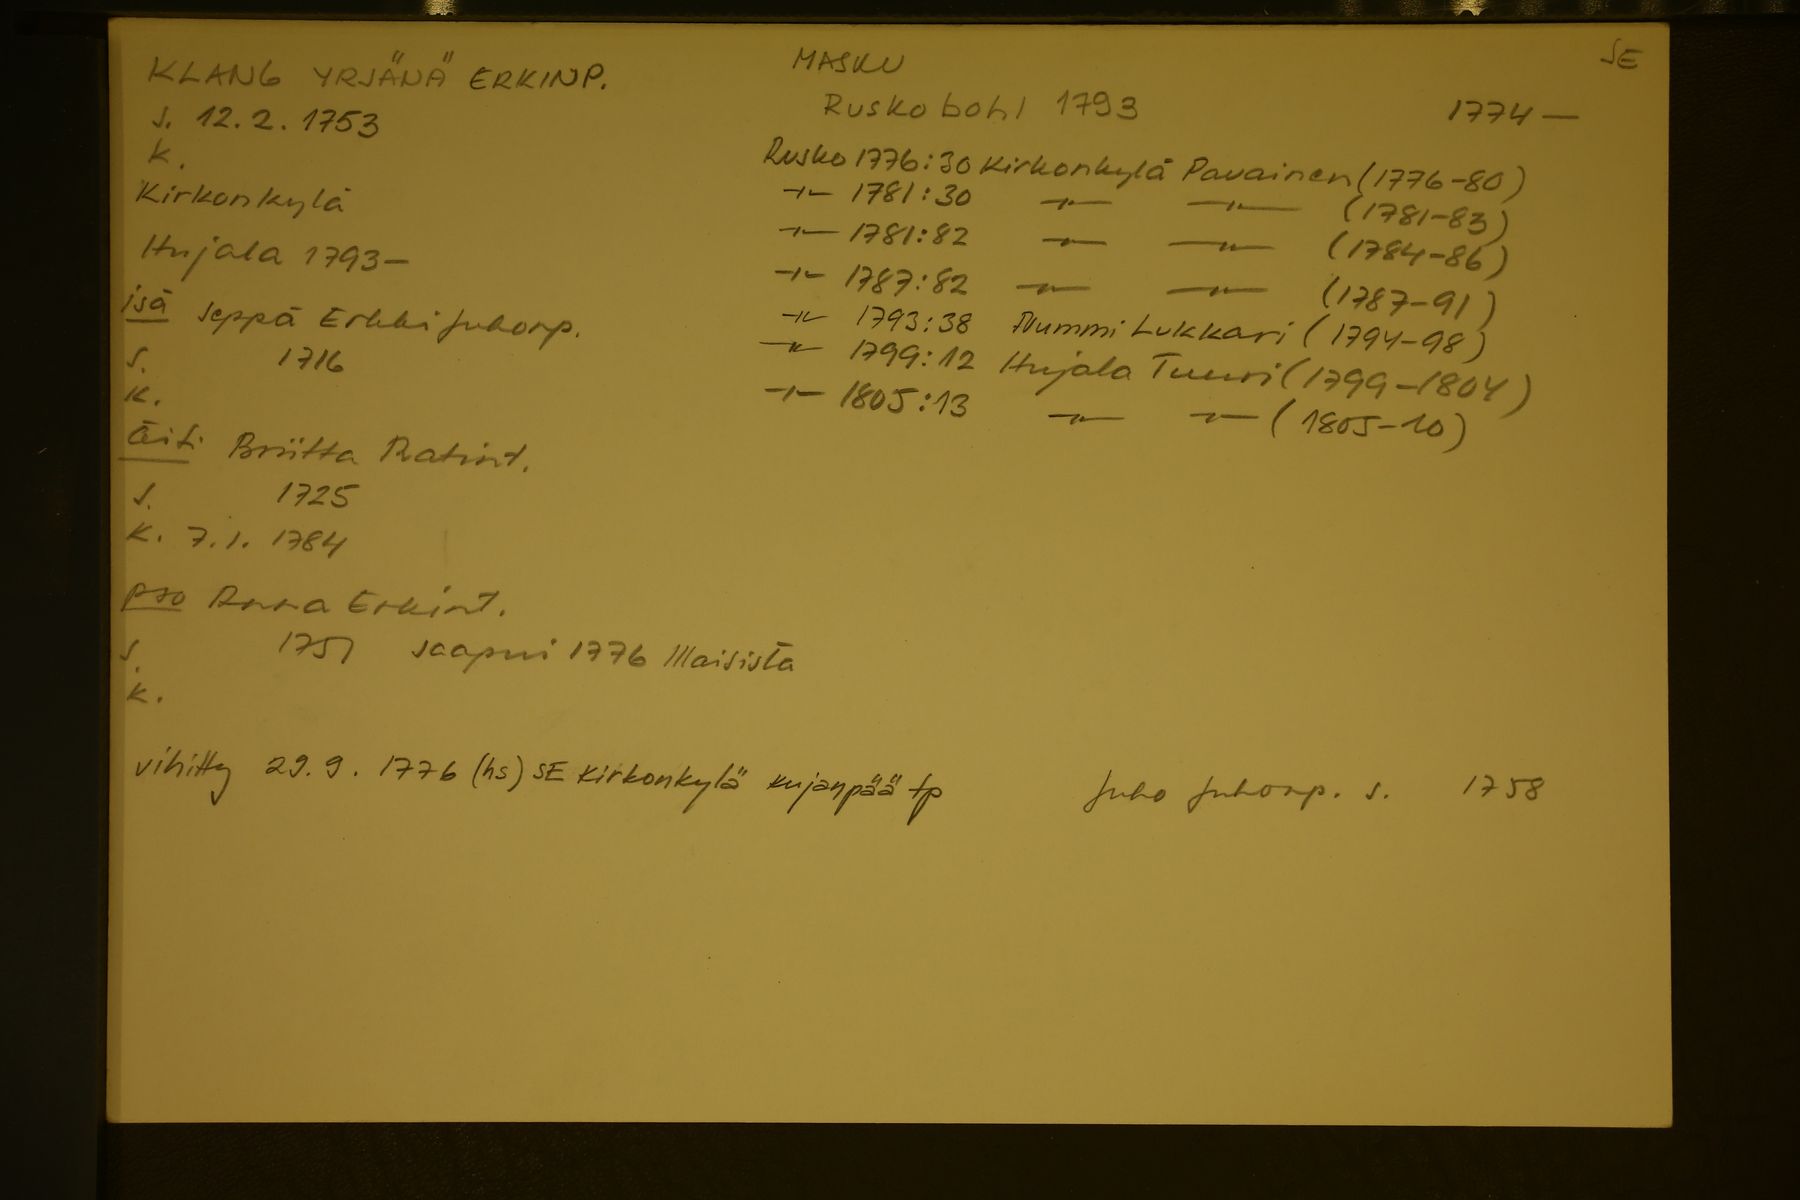 KLANG YRJÄNÄ ERKINP.
s. 12.2. 1753
k.
Kirkonkylä
Hujala 1793—
isä seppä Erkki Juhonp.
s. 1716
k.
äiti Briitta Matint.
s. 1725
k. 7.1. 1784
pso Anna Erkint.
s. 1751 saapui 1776 Maisista
k.
vihitty 29.9. 1776 (hs) SE Kirkonkylä Kujanpää tp
MASKU
Rusko bohl 1793
SE
1774—
Rusko 1776:30 Kirkonkylä Pavainen (1776-80)
-"- 1781:30 -"- -"- (1781-83)
-"- 1781:82 -"- -"- (1784-86)
-"- 1787:82 -"- -"- (1787-91)
-"- 1793:38 Nummi Lukkari (1794-98)
-"- 1799:12 Hujala Tuuri (1799-1804)
-"- 1805:13 -"- -"- (1805-10)
Juho Juhonp. s. 1758